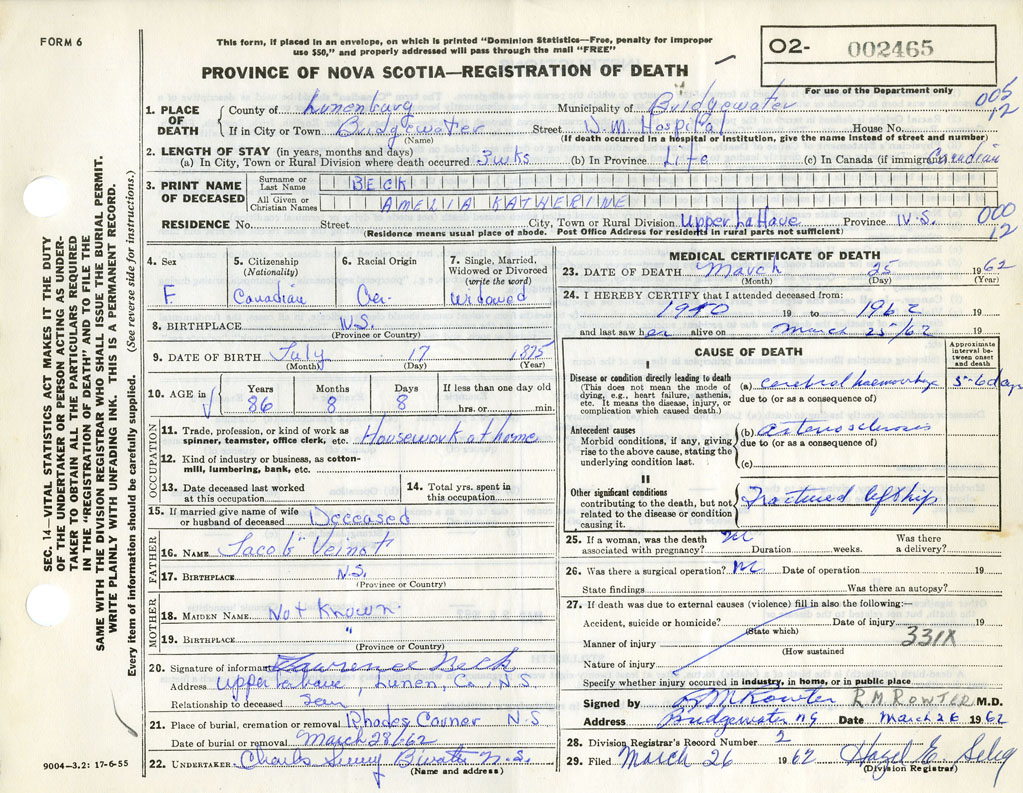 FORM 6
This form, if placed in an envelope, on which is printed "Dominion Statistics—Free, penalty for improper
use $50," and properly addressed will pass through the mail "FREE"
PROVINCE OF NOVA SCOTIA—REGISTRATION OF DEATH
O2- 002465
For use of the Department only
005
12
1. PLACE OF DEATH
County of Lunenburg Municipality of Bridgewater
If in City or Town Bridgewater Street D.M. Hospital House No.
(Name) (If death occurred in a hospital or institution, give the name instead of street and number)
2. LENGTH OF STAY (in years, months and days)
(a) In City, Town or Rural Division where death occurred 3 wks (b) In Province Life (c) In Canada (if immigrant) Canadian
3. PRINT NAME OF DECEASED
Surname or Last Name BECK
All Given or Christian Names AMELIA KATHERINE
RESIDENCE No. Street City, Town or Rural Division Upper LaHave Province N.S.
(Residence means usual place of abode. Post Office Address for residents in rural parts not sufficient)
000
12
4. Sex F
5. Citizenship (Nationality) Canadian
6. Racial Origin Ger.
7. Single, Married, Widowed or Divorced (write the word) Widowed
8. BIRTHPLACE N.S.
(Province or Country)
9. DATE OF BIRTH July 17 1875
(Month) (Day) (Year)
10. AGE in Years 86 Months 8 Days 8 If less than one day old hrs. or min.
OCCUPATION
11. Trade, profession, or kind of work as spinner, teamster, office clerk, etc. Housework at home
12. Kind of industry or business, as cotton-mill, lumbering, bank, etc.
13. Date deceased last worked at this occupation
14. Total yrs. spent in this occupation
15. If married give name of wife or husband of deceased Deceased
FATHER
16. NAME Jacob Veinot
17. BIRTHPLACE N.S.
(Province or Country)
MOTHER
18. MAIDEN NAME Not Known
19. BIRTHPLACE "
(Province or Country)
20. Signature of informant Lawrence Beck
Address Upper LaHave, Lunen. Co., N.S
Relationship to deceased Son
21. Place of burial, cremation or removal Rhodes Corner N.S
Date of burial or removal March 28/62
22. UNDERTAKER Charles Sweeny Bwater N.S.
(Name and address)
MEDICAL CERTIFICATE OF DEATH
23. DATE OF DEATH March 25 1962
(Month) (Day) (Year)
24. I HEREBY CERTIFY that I attended deceased from:
1940 19 to 1962 19
and last saw her alive on March 25/62 19
CAUSE OF DEATH
Approximate interval between onset and death
I
Disease or condition directly leading to death
(This does not mean the mode of dying, e.g., heart failure, asthenia, etc. It means the disease, injury, or complication which caused death.)
(a) cerebral haemorrhage 5-6 days
due to (or as a consequence of)
Antecedent causes
Morbid conditions, if any, giving rise to the above cause, stating the underlying condition last.
(b) arteriosclerosis
due to (or as a consequence of)
(c)
II
Other significant conditions
contributing to the death, but not related to the disease or condition causing it.
Fractured left hip
25. If a woman, was the death associated with pregnancy? Duration weeks. Was there a delivery?
26. Was there a surgical operation? Date of operation 19
State findings Was there an autopsy?
27. If death was due to external causes (violence) fill in also the following:—
Accident, suicide or homicide? Date of injury 19
(State which)
Manner of injury 331X
(How sustained
Nature of injury
Specify whether injury occurred in industry, in home, or in public place
Signed by R M Rowter R.M. ROWTER M.D.
Address Bridgewater NS Date March 26 1962
28. Division Registrar's Record Number 2
29. Filed March 26 1962 Hazel E. Selig
(Division Registrar)
SEC. 14—VITAL STATISTICS ACT MAKES IT THE DUTY
OF THE UNDERTAKER OR PERSON ACTING AS UNDER-
TAKER TO OBTAIN ALL THE PARTICULARS REQUIRED
IN THE "REGISTRATION OF DEATH" AND TO FILE THE
SAME WITH THE DIVISION REGISTRAR WHO SHALL ISSUE THE BURIAL PERMIT.
WRITE PLAINLY WITH UNFADING INK. THIS IS A PERMANENT RECORD.
Every item of information should be carefully supplied. (See reverse side for instructions.)
9004—3.2: 17-6-55